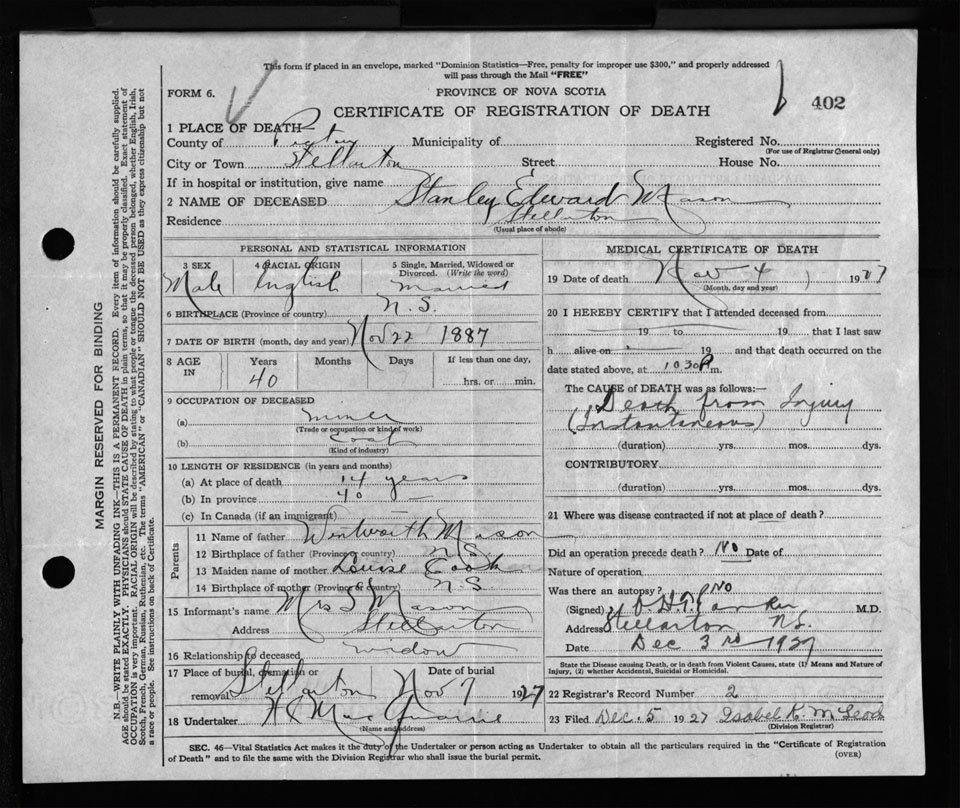 This form if placed in an envelope, marked "Dominion Statistics—Free, penalty for improper use $300," and properly addressed
will pass through the Mail "FREE"
FORM 6.
PROVINCE OF NOVA SCOTIA
402
CERTIFICATE OF REGISTRATION OF DEATH
1 PLACE OF DEATH—
County of Pictou Municipality of Registered No.
(For use of Registrar General only)
City or Town Stellarton Street House No.
If in hospital or institution, give name
2 NAME OF DECEASED Stanley Edward Mason
Residence Stellarton
(Usual place of abode)
PERSONAL AND STATISTICAL INFORMATION
3 SEX 4 RACIAL ORIGIN 5 Single, Married, Widowed or Divorced. (Write the word)
Male English Married
6 BIRTHPLACE (Province or country) N.S.
7 DATE OF BIRTH (month, day and year) Nov 22 1887
8 AGE IN Years Months Days If less than one day,
40 hrs. or min.
9 OCCUPATION OF DECEASED
(a) miner
(Trade or occupation or kind of work)
(b) coal
(Kind of industry)
10 LENGTH OF RESIDENCE (in years and months)
(a) At place of death 14 years
(b) In province 40 —
(c) In Canada (if an immigrant)
Parents
11 Name of father Wentworth Mason
12 Birthplace of father (Province or country) N.S.
13 Maiden name of mother Louise Cook
14 Birthplace of mother (Province or country) N.S
15 Informant's name Mrs S Mason
Address Stellarton
16 Relationship to deceased widow
17 Place of burial, cremation or removal Stellarton Date of burial Nov 7 1927
18 Undertaker
(Name and address)
MEDICAL CERTIFICATE OF DEATH
19 Date of death Nov 4 1927
(Month, day and year)
20 I HEREBY CERTIFY that I attended deceased from
19 to 19 that I last saw
h alive on 19 and that death occurred on the
date stated above, at 10 30 P m.
The CAUSE of DEATH was as follows:—
Death from Injury
(Instantaneous)
(duration) yrs. mos. dys.
CONTRIBUTORY
(duration) yrs. mos. dys.
21 Where was disease contracted if not at place of death?
Did an operation precede death? No Date of
Nature of operation
Was there an autopsy? No
(Signed) M.D.
Address Stellarton N.S.
Date Dec 3rd 1927
State the Disease causing Death, or in death from Violent Causes, state (1) Means and Nature of
Injury, (2) whether Accidental, Suicidal or Homicidal.
22 Registrar's Record Number 2
23 Filed Dec. 5 1927 Isabel R. McLeod
(Division Registrar)
SEC. 46—Vital Statistics Act makes it the duty of the Undertaker or person acting as Undertaker to obtain all the particulars required in the "Certificate of Registration
of Death" and to file the same with the Division Registrar who shall issue the burial permit.
(OVER)
MARGIN RESERVED FOR BINDING
N.B.—WRITE PLAINLY WITH UNFADING INK—THIS IS A PERMANENT RECORD. Every item of information should be carefully supplied.
AGE should be stated EXACTLY. PHYSICIANS should STATE CAUSE OF DEATH in plain terms, so that it may be properly classified. Exact statement of
OCCUPATION is very important. RACIAL ORIGIN will be described by stating to what people or tongue the deceased person belonged, whether English, Irish,
Scotch, French, German, Russian, Ruthenian, etc. The terms "AMERICAN" or "CANADIAN" SHOULD NOT BE USED as they express citizenship but not
a race or people. See instructions on back of Certificate.